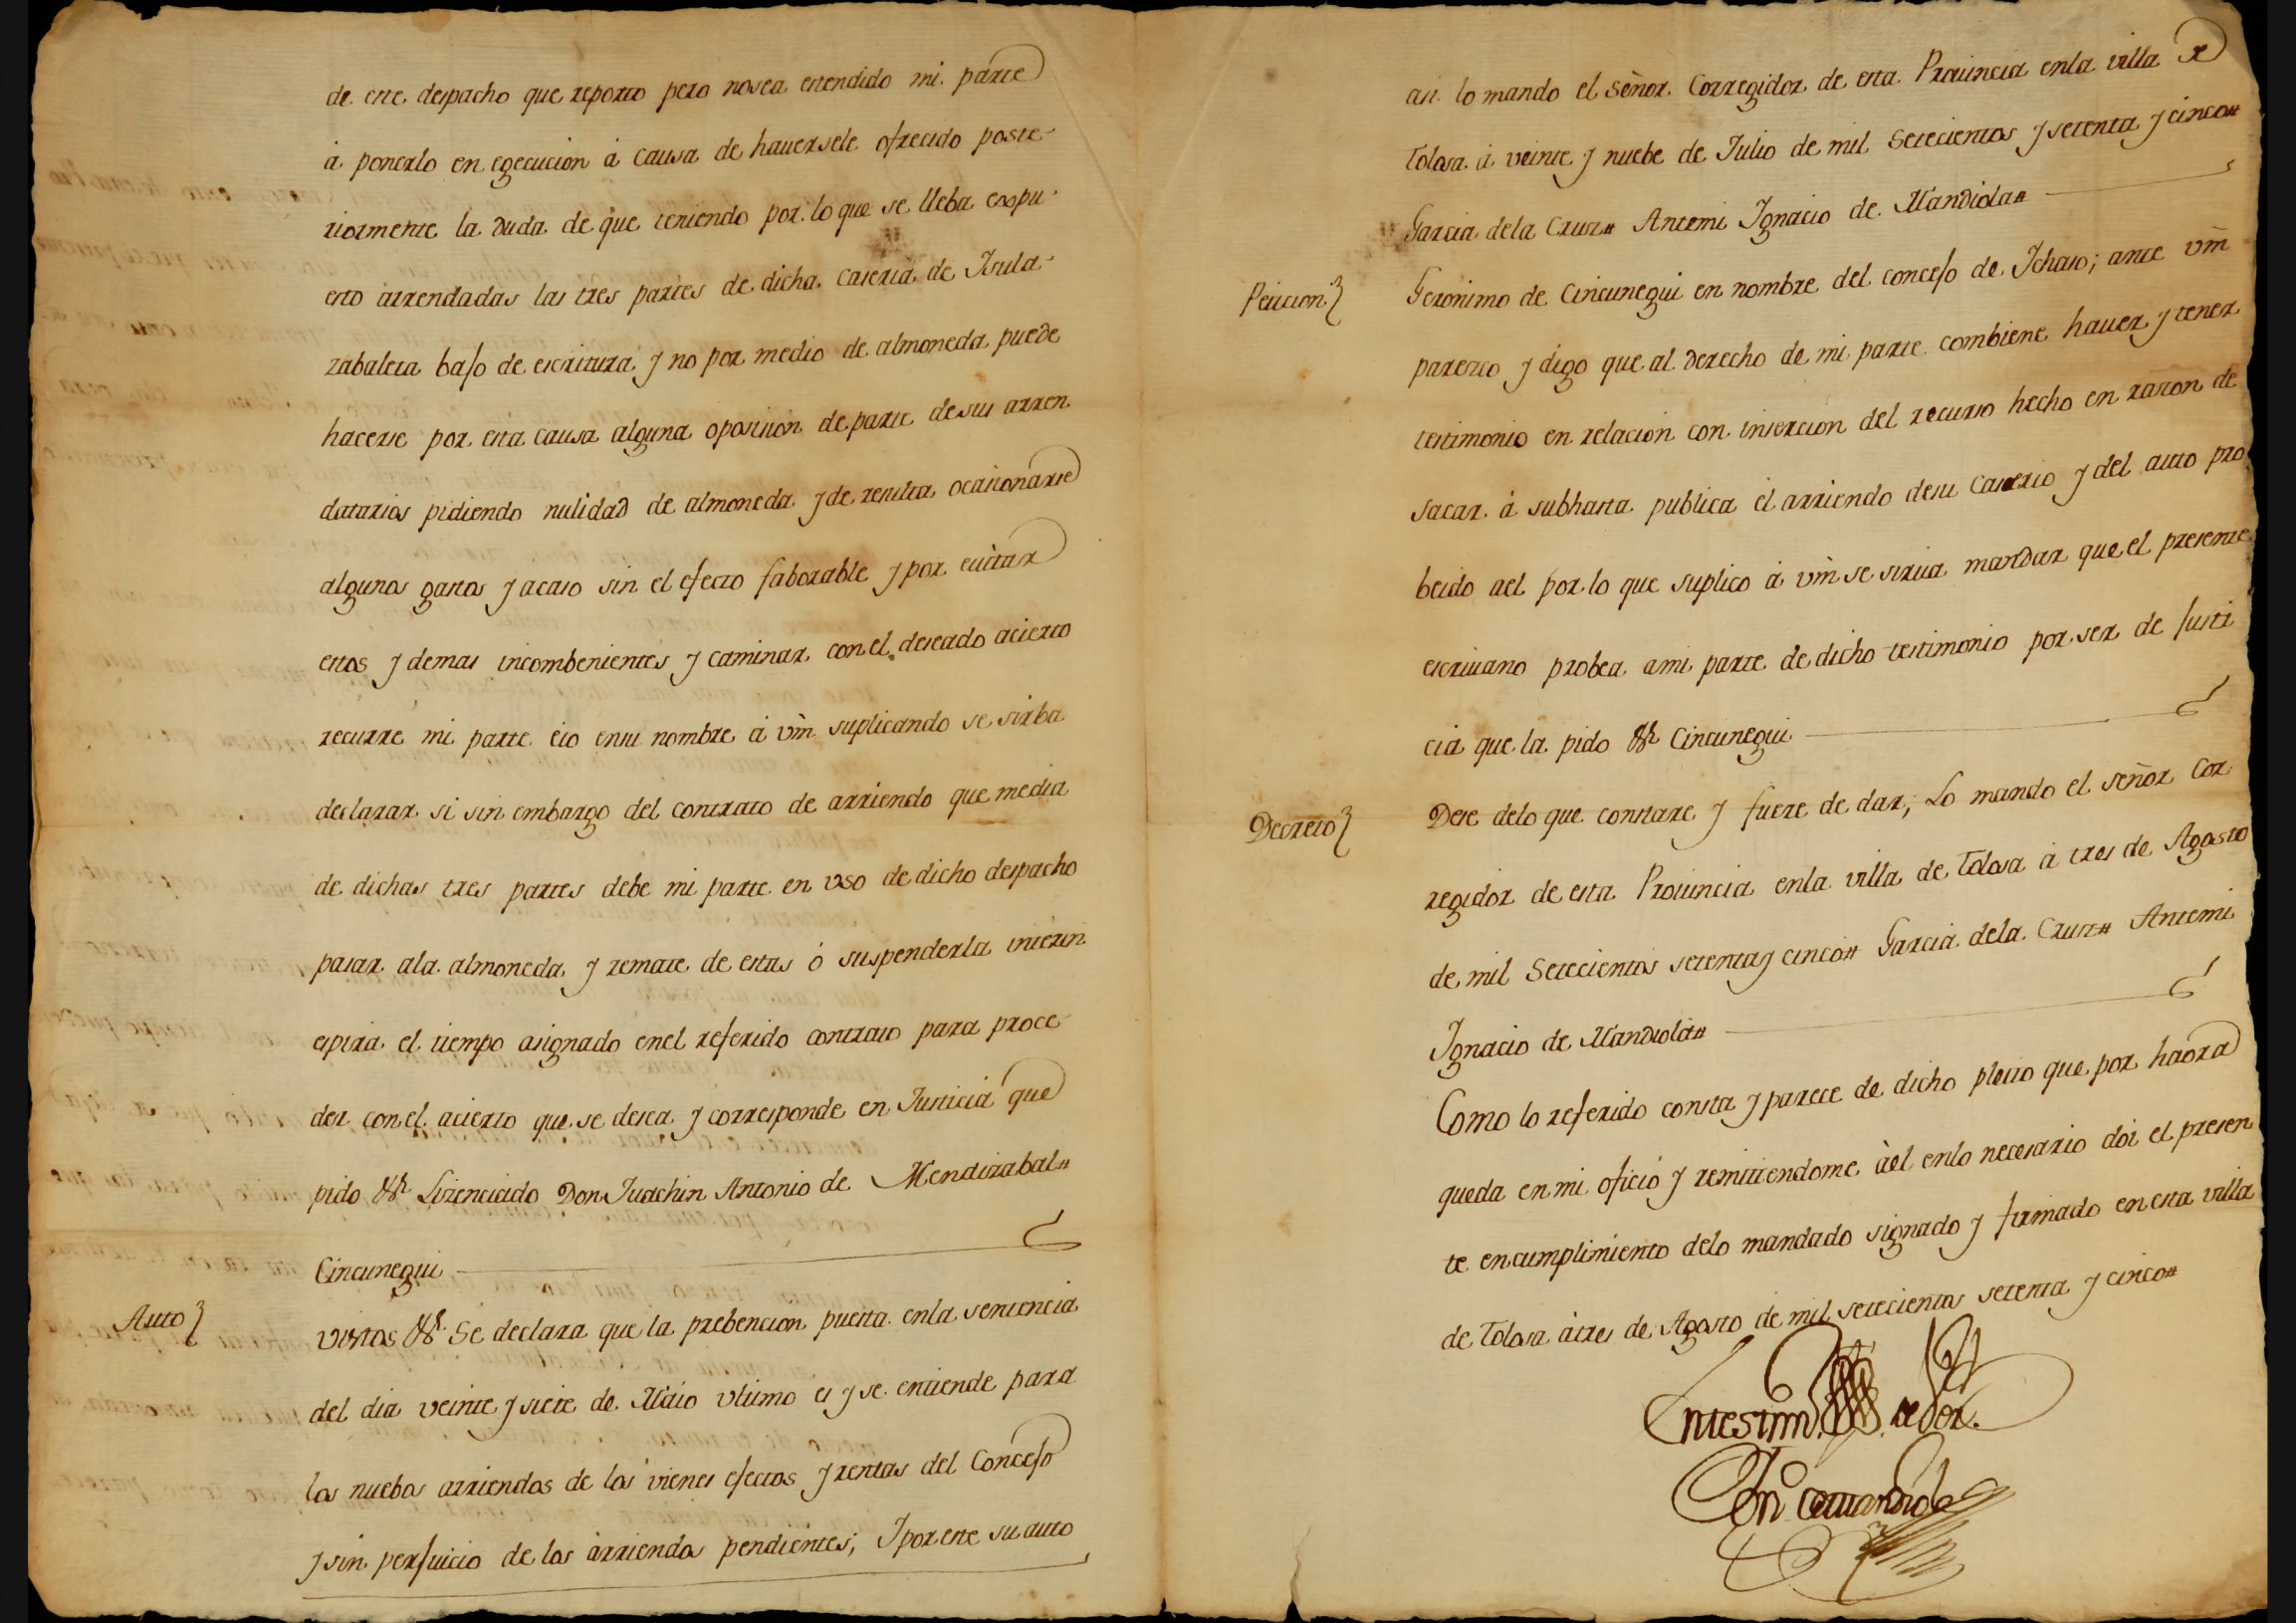 de este despacho que reporto pero nosea estendido mi parte
á ponerlo en egecucion á causa de hauersele ofrecido poste-
riormente la duda de que teniendo por lo que se lleba expu-
esto arrendadas las tres partes de dicha caseria de Isula-
zabaleta bajo de escritura y no por medio de almoneda puede
hacerse por esta causa alguna oposicion de parte desus arren
datarios pidiendo nulidad de almoneda y de resulta ocasionarse
algunos gastos y acaso sin el efecto faborable y por euitar
estos y demas incombenientes y caminar con el deseado acierto
recurre mi parte eio ensu nombre á vm̃ suplicando se sirba
declarar si sin embargo del contrato de arriendo que media
de dichas tres partes debe mi parte en vso de dicho despacho
pasar ala almoneda y remate de estas ó suspenderla interin
espira el tiempo asignado enel referido contrato para proce-
der con el acierto que se desea y corresponde en Justicia que
pido &ª Lizenciado Don Juachin Antonio de Mendizabal＝
Cincunegui
Auto
vistos &ª Se declara que la prebencion puesta enla sentencia
del dia veinte y siete de Maio vltimo es y se entiende para
los nuebos arriendos de los vienes efectos y rentas del Concejo
y sin perjuicio de los arriendos pendientes; I por este su auto
asi lo mando el señor Corregidor de esta Prouincia enla villa de
Tolosa á veinte y nuebe de Julio de mil Setecientos y setenta y cinco＝
Garcia dela Cruz＝ Antemi Ignacio de Mandiola＝
Peticion
Geronimo de Cincunegui en nombre del concejo de Ichaso; ante vm̃
parezco y digo que al derecho de mi parte combiene hauer y tener
testimonio en relacion con insercion del recurso hecho en razon de
sacar á subhasta publica el arriendo desu Caserio y del auto pro
beido ael por lo que suplico á vm̃ se sirua mandar que el presente
escriuano probea ami parte de dicho testimonio por ser de Justi
cia que la pido &ª Cincunegui
Decreto
Dese delo que constare y fuere de dar; Lo mando el señor Cor
regidor de esta Prouincia enla villa de Tolosa á tres de Agosto
de mil Setecientos setenta y cinco＝ Garcia dela Cruz＝ Antemi
Ignacio de Mandiola＝
Como lo referido consta y parece de dicho pleito que por haora
queda en mi oficio y remitiendome áel enlo necesario doi el presen
te en cumplimiento delo mandado signado y firmado en esta villa
de Tolosa átres de Agosto de mil setecientos setenta y cinco＝